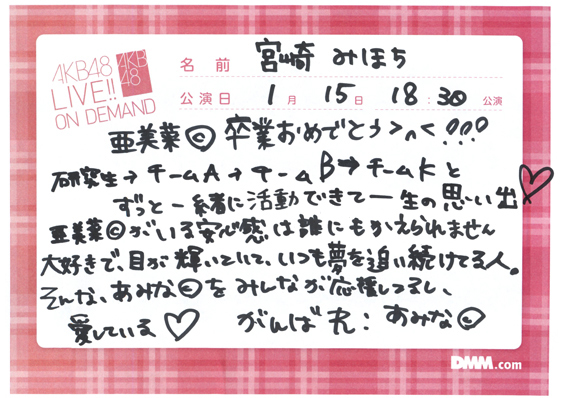 AKB48
LIVE!!
ON DEMAND
AKB
48
名前 宮崎 みほち
公演日 1月 15日 18:30 公演
亜美菜◎卒業おめでとう>ㅅ<!!!
研究生→チームA→チームB→チームKと
ずっと一緒に活動できて一生の思い出♡
亜美菜◎がいる安心感は誰にもかえられません
大好きで、目が輝いていて、いつも夢を追い続けてる人。
そんな、あみな◎をみんなが応援してるし、
愛している♡ がんば 丸: あみな◎
DMM.com